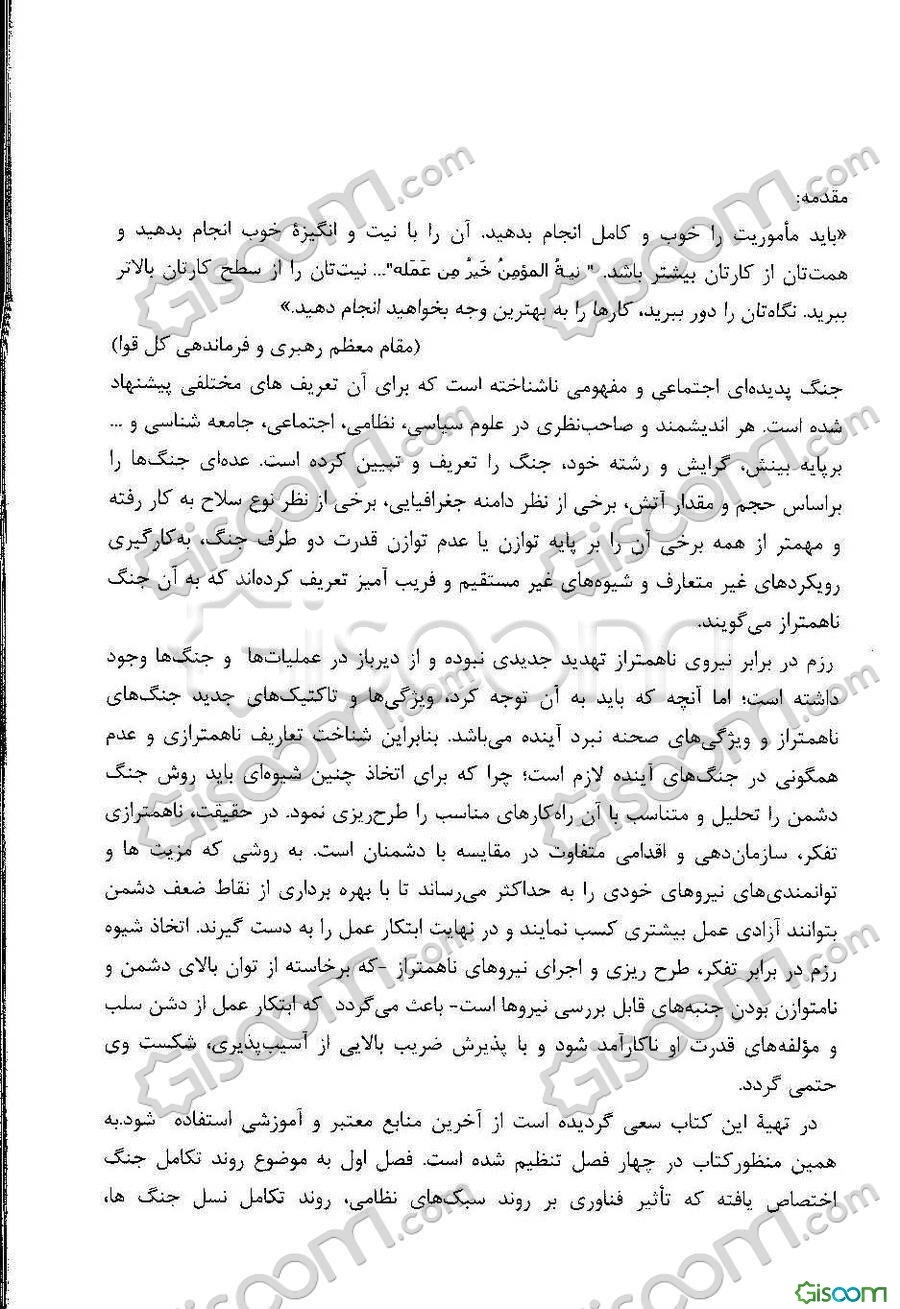 مقدمه:
«باید مأموریت را خوب و کامل انجام بدهید. آن را با نیت و انگیزۀ خوب انجام بدهید و
همت‌تان از کارتان بیشتر باشد. " نیةُ المؤمِنُ خَیرُ مِن عَمَله"... نیت‌تان را از سطح کارتان بالاتر
ببرید. نگاه‌تان را دور ببرید، کارها را به بهترین وجه بخواهید انجام دهید.»
(مقام معظم رهبری و فرماندهی کل قوا)
جنگ پدیده‌ای اجتماعی و مفهومی ناشناخته است که برای آن تعریف های مختلفی پیشنهاد
شده است. هر اندیشمند و صاحب‌نظری در علوم سیاسی، نظامی، اجتماعی، جامعه شناسی و ...
برپایه بینش، گرایش و رشته خود، جنگ را تعریف و تبیین کرده است. عده‌ای جنگ‌ها را
براساس حجم و مقدار آتش، برخی از نظر دامنه جغرافیایی، برخی از نظر نوع سلاح به کار رفته
و مهمتر از همه برخی آن را بر پایه توازن یا عدم توازن قدرت دو طرف جنگ، به‌کارگیری
رویکردهای غیر متعارف و شیوه‌های غیر مستقیم و فریب آمیز تعریف کرده‌اند که به آن جنگ
ناهمتراز می‌گویند.
رزم در برابر نیروی ناهمتراز تهدید جدیدی نبوده و از دیرباز در عملیات‌ها و جنگ‌ها وجود
داشته است؛ اما آنچه که باید به آن توجه کرد، ویژگی‌ها و تاکتیک‌های جدید جنگ‌های
ناهمتراز و ویژگی‌های صحنه نبرد آینده می‌باشد. بنابراین شناخت تعاریف ناهمترازی و عدم
همگونی در جنگ‌های آینده لازم است؛ چرا که برای اتخاذ چنین شیوه‌ای باید روش جنگ
دشمن را تحلیل و متناسب با آن راه‌کارهای مناسب را طرح‌ریزی نمود. در حقیقت، ناهمترازی
تفکر، سازمان‌دهی و اقدامی متفاوت در مقایسه با دشمنان است. به روشی که مزیت ها و
توانمندی‌های نیروهای خودی را به حداکثر می‌رساند تا با بهره برداری از نقاط ضعف دشمن
بتوانند آزادی عمل بیشتری کسب نمایند و در نهایت ابتکار عمل را به دست گیرند. اتخاذ شیوه
رزم در برابر تفکر، طرح ریزی و اجرای نیروهای ناهمتراز -که برخاسته از توان بالای دشمن و
نامتوازن بودن جنبه‌های قابل بررسی نیروها است- باعث می‌گردد که ابتکار عمل از دشن سلب
و مؤلفه‌های قدرت او ناکارآمد شود و با پذیرش ضریب بالایی از آسیب‌پذیری، شکست وی
حتمی گردد.
در تهیۀ این کتاب سعی گردیده است از آخرین منابع معتبر و آموزشی استفاده شود.به
همین منظورکتاب در چهار فصل تنظیم شده است. فصل اول به موضوع روند تکامل جنگ
اختصاص یافته که تأثیر فناوری بر روند سبک‌های نظامی، روند تکامل نسل جنگ ها،
Gisoom